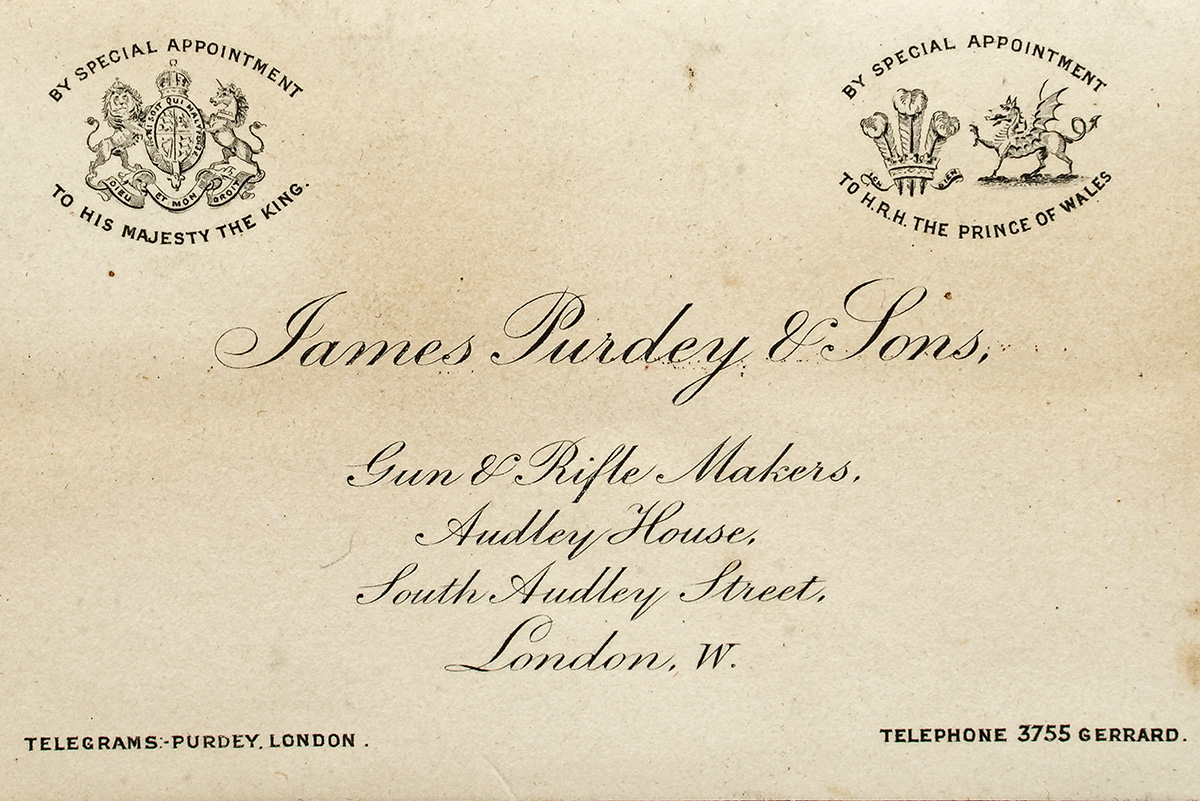 BY SPECIAL APPOINTMENT
HONI SOIT QUI MAL Y PENSE
DIEU ET MON DROIT
TO HIS MAJESTY THE KING.
BY SPECIAL APPOINTMENT
ICH DIEN
TO H.R.H. THE PRINCE OF WALES
James Purdey & Sons,
Gun & Rifle Makers,
Audley House,
South Audley Street,
London, W.
TELEGRAMS:-PURDEY, LONDON.
TELEPHONE 3755 GERRARD.